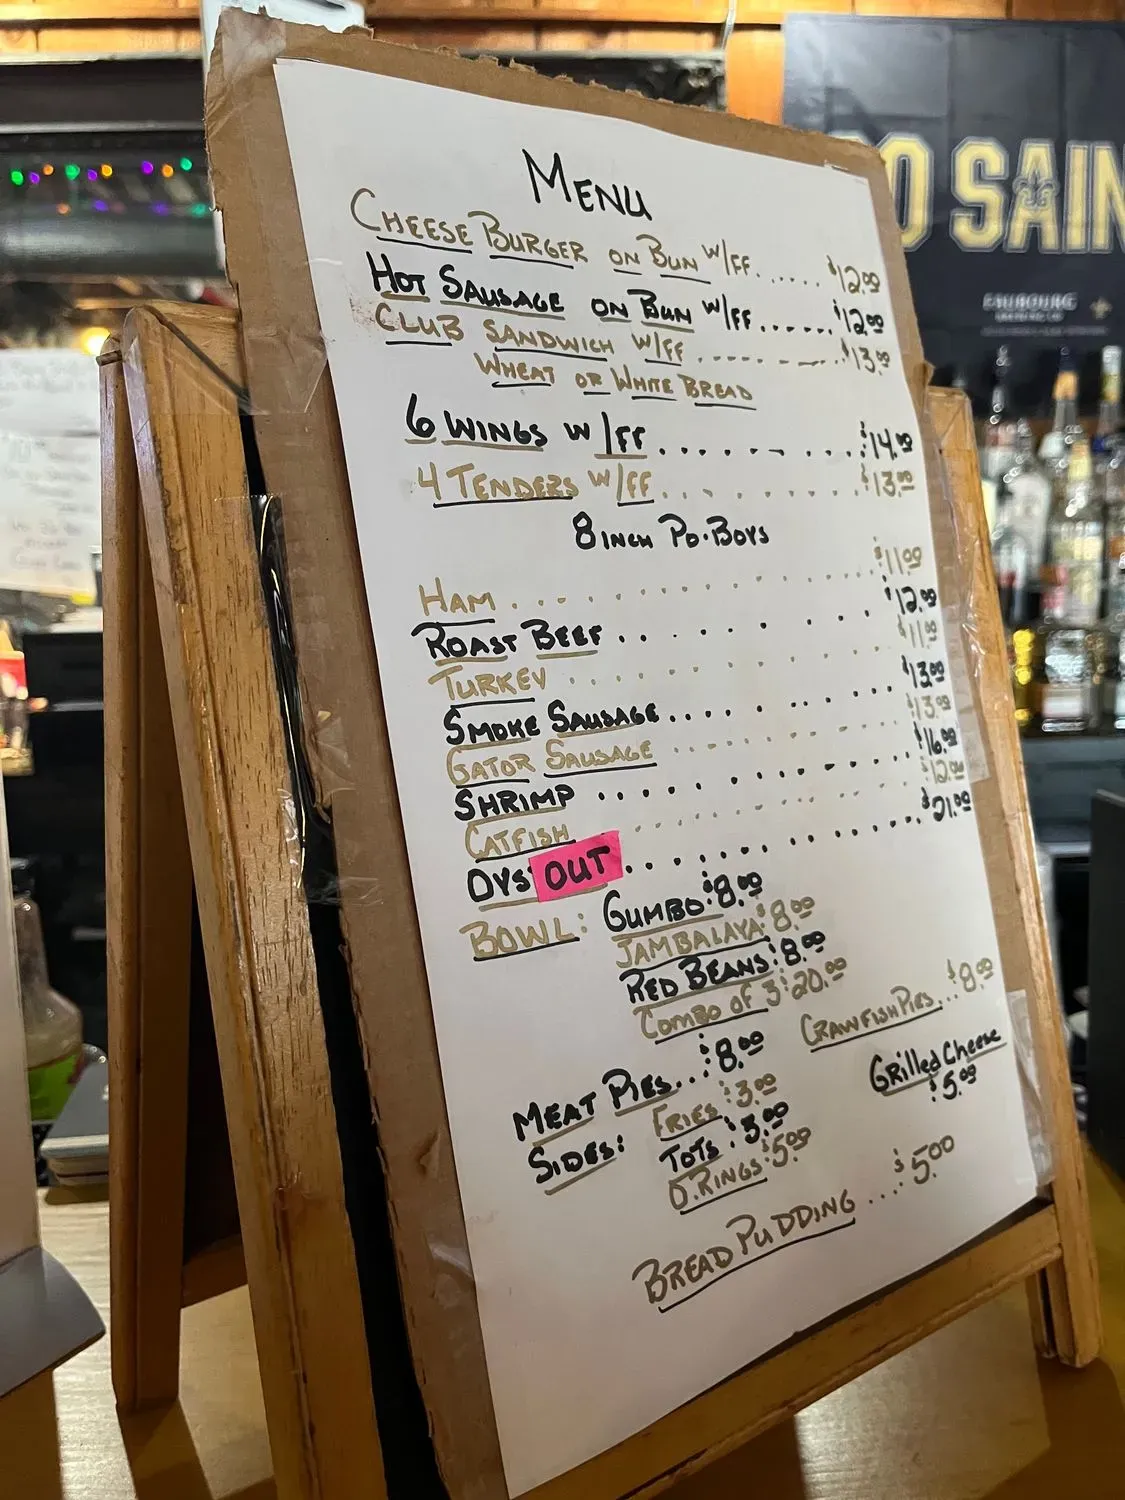 MENU
CHEESE BURGER ON BUN W/FF..... $12.00
HOT SAUSAGE ON BUN W/FF...... $12.00
CLUB SANDWICH W/FF ......... $13.00
WHEAT OR WHITE BREAD
6 WINGS W/FF.......... $14.00
4 TENDERS W/FF.......... $13.00
8 INCH PO-BOYS
HAM............ $11.00
ROAST BEEF........ $12.00
TURKEY........... $11.00
SMOKE SAUSAGE........ $13.00
GATOR SAUSAGE.......... $13.00
SHRIMP.......... $16.00
CATFISH.......... $12.00
OYS OUT.......... $21.00
BOWL: GUMBO: $8.00
JAMBALAYA: $8.00
RED BEANS: $8.00
COMBO OF 3: $20.00
CRAWFISH PIES... $8.00
MEAT PIES... $8.00
GRilled Cheese
$5.00
SIDES: FRIES: $3.00
TOTS: $3.00
O.RINGS: $5.00
BREAD PUDDING .... $5.00
O SAIN
FAUBOURG